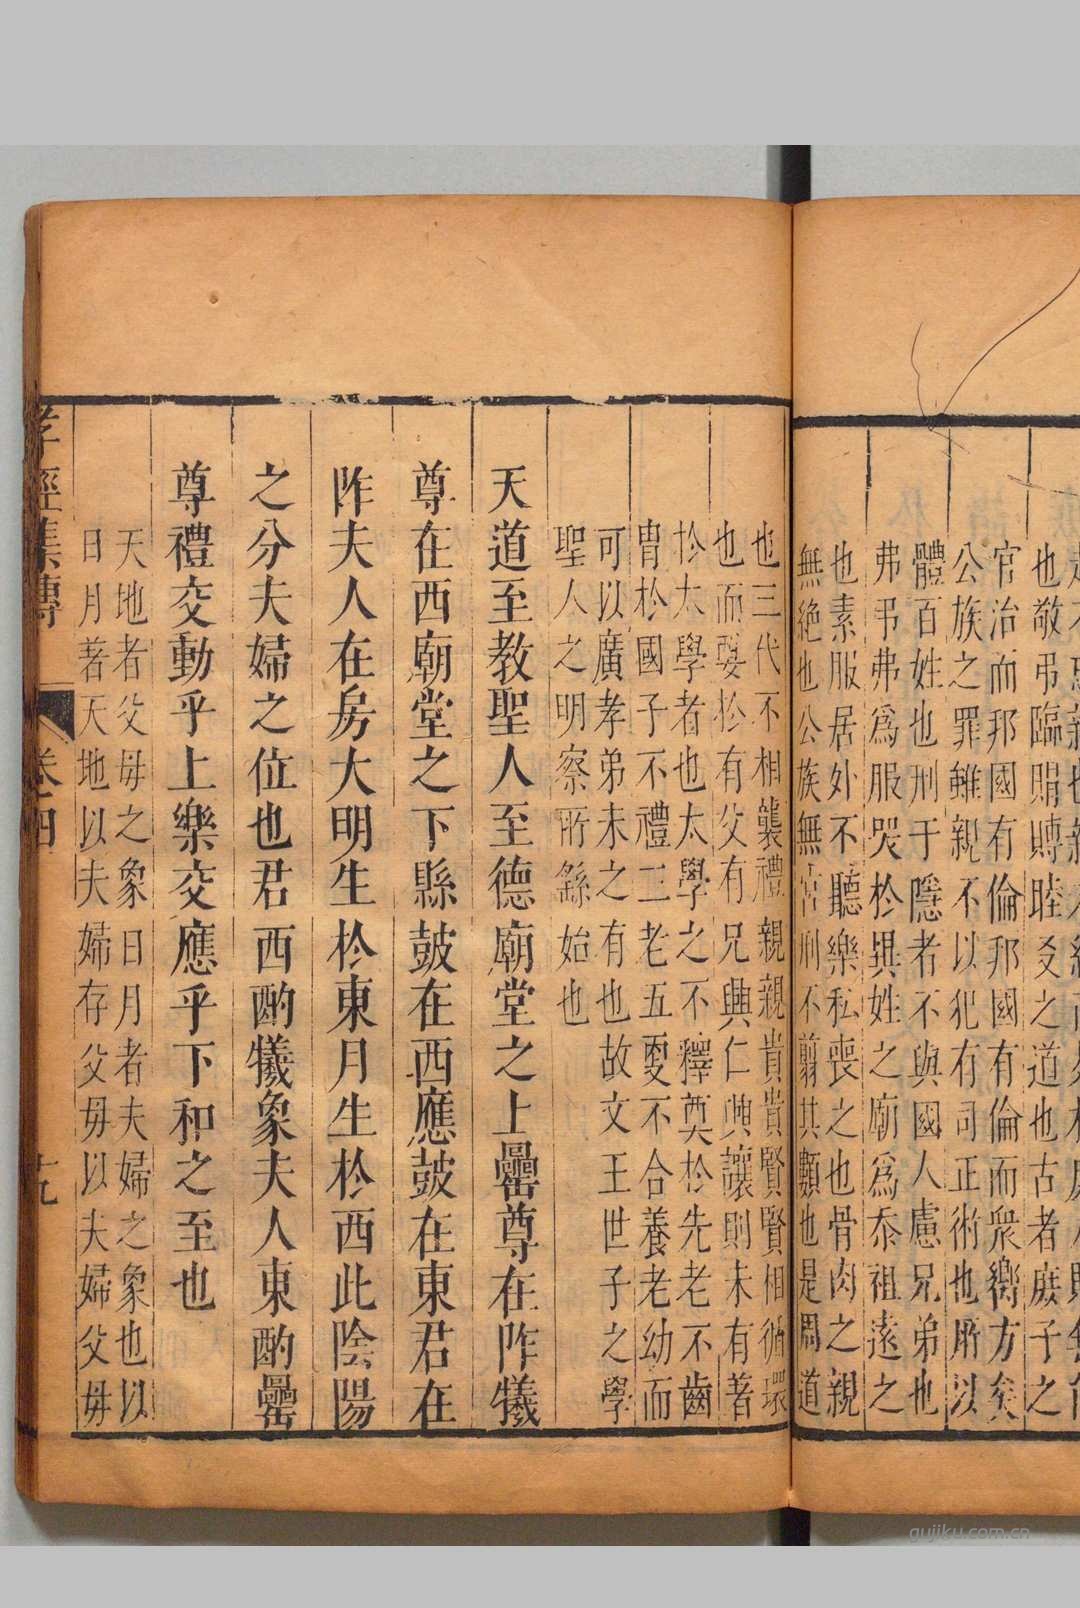 也敬弔臨賵賻睦友之道也古者庶子之
官治而邦國有倫邦國有倫而衆嚮方矣
公族之罪雖親不以犯有司正術也所以
體百姓也刑于隱者不與國人慮兄弟也
弗弔弗爲服哭於異姓之廟爲忝祖遠之
也素服居外不聽樂私喪之也骨肉之親
無絕也公族無宮刑不翦其類也是周道
也三代不相襲禮親親貴貴賢賢相循環
也而要於有父有兄興仁興讓則未有著
於太學者也太學之不釋奠於先老不齒
冑於國子不禮三老五更不合養老幼而
可以廣孝弟未之有也故文王世子之學
聖人之明察所繇始也
天道至教聖人至德廟堂之上罍尊在阼犧
尊在西廟堂之下縣鼓在西應鼓在東君在
阼夫人在房大明生於東月生於西此陰陽
之分夫婦之位也君西酌犧象夫人東酌罍
尊禮交動乎上樂交應乎下和之至也
天地者父母之象日月者夫婦之象也以
日月著天地以夫婦存父母以夫婦父母
孝經集傳 卷四
gujiku.com.cn